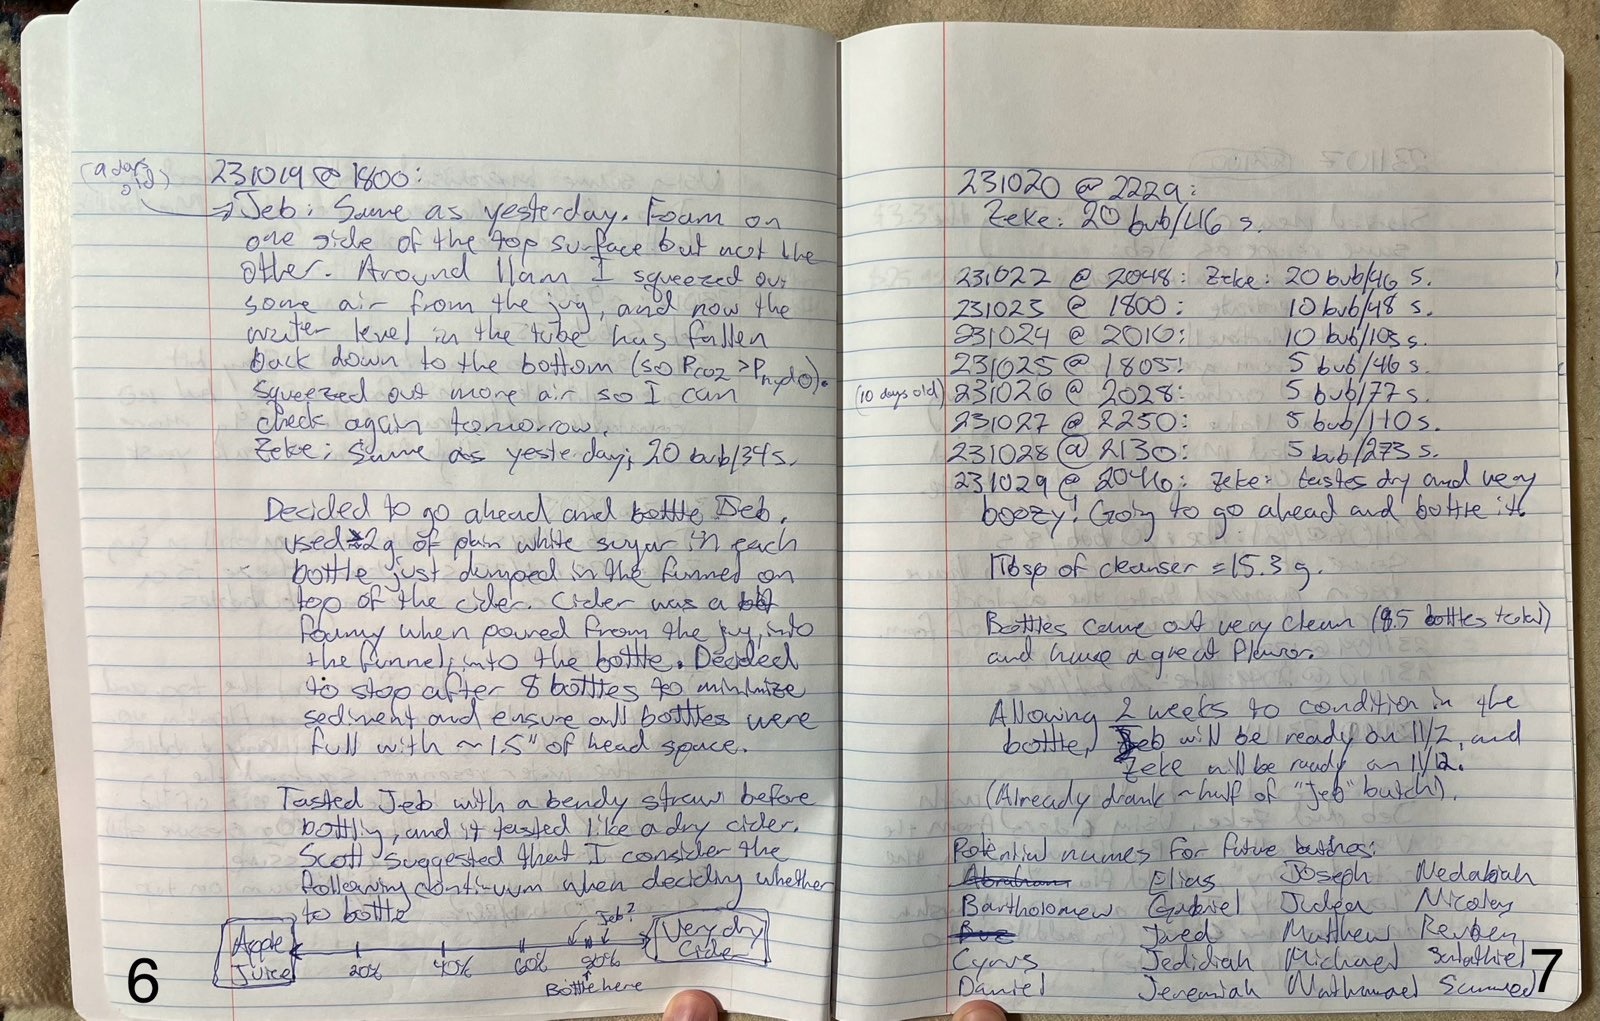 (9 days old)
231019 @ 1800:
Jeb: Same as yesterday. Foam on
one side of the top surface but not the
other. Around 11am I squeezed out
some air from the jug, and now the
water level in the tube has fallen
back down to the bottom (so PCO2 > Phyd0).
Squeezed out more air so I can
check again tomorrow.
Zeke: Same as yesterday; 20 bub/34s.
Decided to go ahead and bottle Jeb.
used ~2g of plain white sugar in each
bottle just dumped in the funnel on
top of the cider. Cider was a bit
foamy when poured from the jug, into
the funnel, into the bottle. Decided
to stop after 8 bottles to minimize
sediment and ensure all bottles were
full with ~1.5" of head space.
Tasted Jeb with a bendy straw before
bottlig, and it tasted like a dry cider.
Scott suggested that I consider the
following continuum when deciding whether
to bottle
Jeb?
Apple Juice
20% 40% 60% 80%
Very dry Cider
Bottle here
6
231020 @ 2229:
Zeke: 20 bub/46 s.
231022 @ 2048: Zeke: 20 bub/46 s.
231023 @ 1800: 10 bub/48 s.
231024 @ 2010: 10 bub/103 s.
231025 @ 1805: 5 bub/46 s.
(10 days old) 231026 @ 2028: 5 bub/77 s.
231027 @ 2250: 5 bub/110 s.
231028 @ 2130: 5 bub/273 s.
231029 @ 2046: Zeke: tastes dry and very
boozy! Going to go ahead and bottle it.
1 Tbsp of cleanser = 15.3 g.
Bottles came out very clean (8.5 bottles total)
and have a great flavor.
Allowing 2 weeks to condition in the
bottle, Jeb will be ready on 11/2, and
Zeke will be ready on 11/12.
(Already drank ~half of "Jeb" batch).
Potential names for future batches:
Abraham Elias Joseph Nedabiah
Bartholomew Gabriel Judea Nicolas
Boz Jared Matthew Reuben
Cyrus Jedidiah Michael Salathiel
Daniel Jeremiah Nathanael Samuel
7